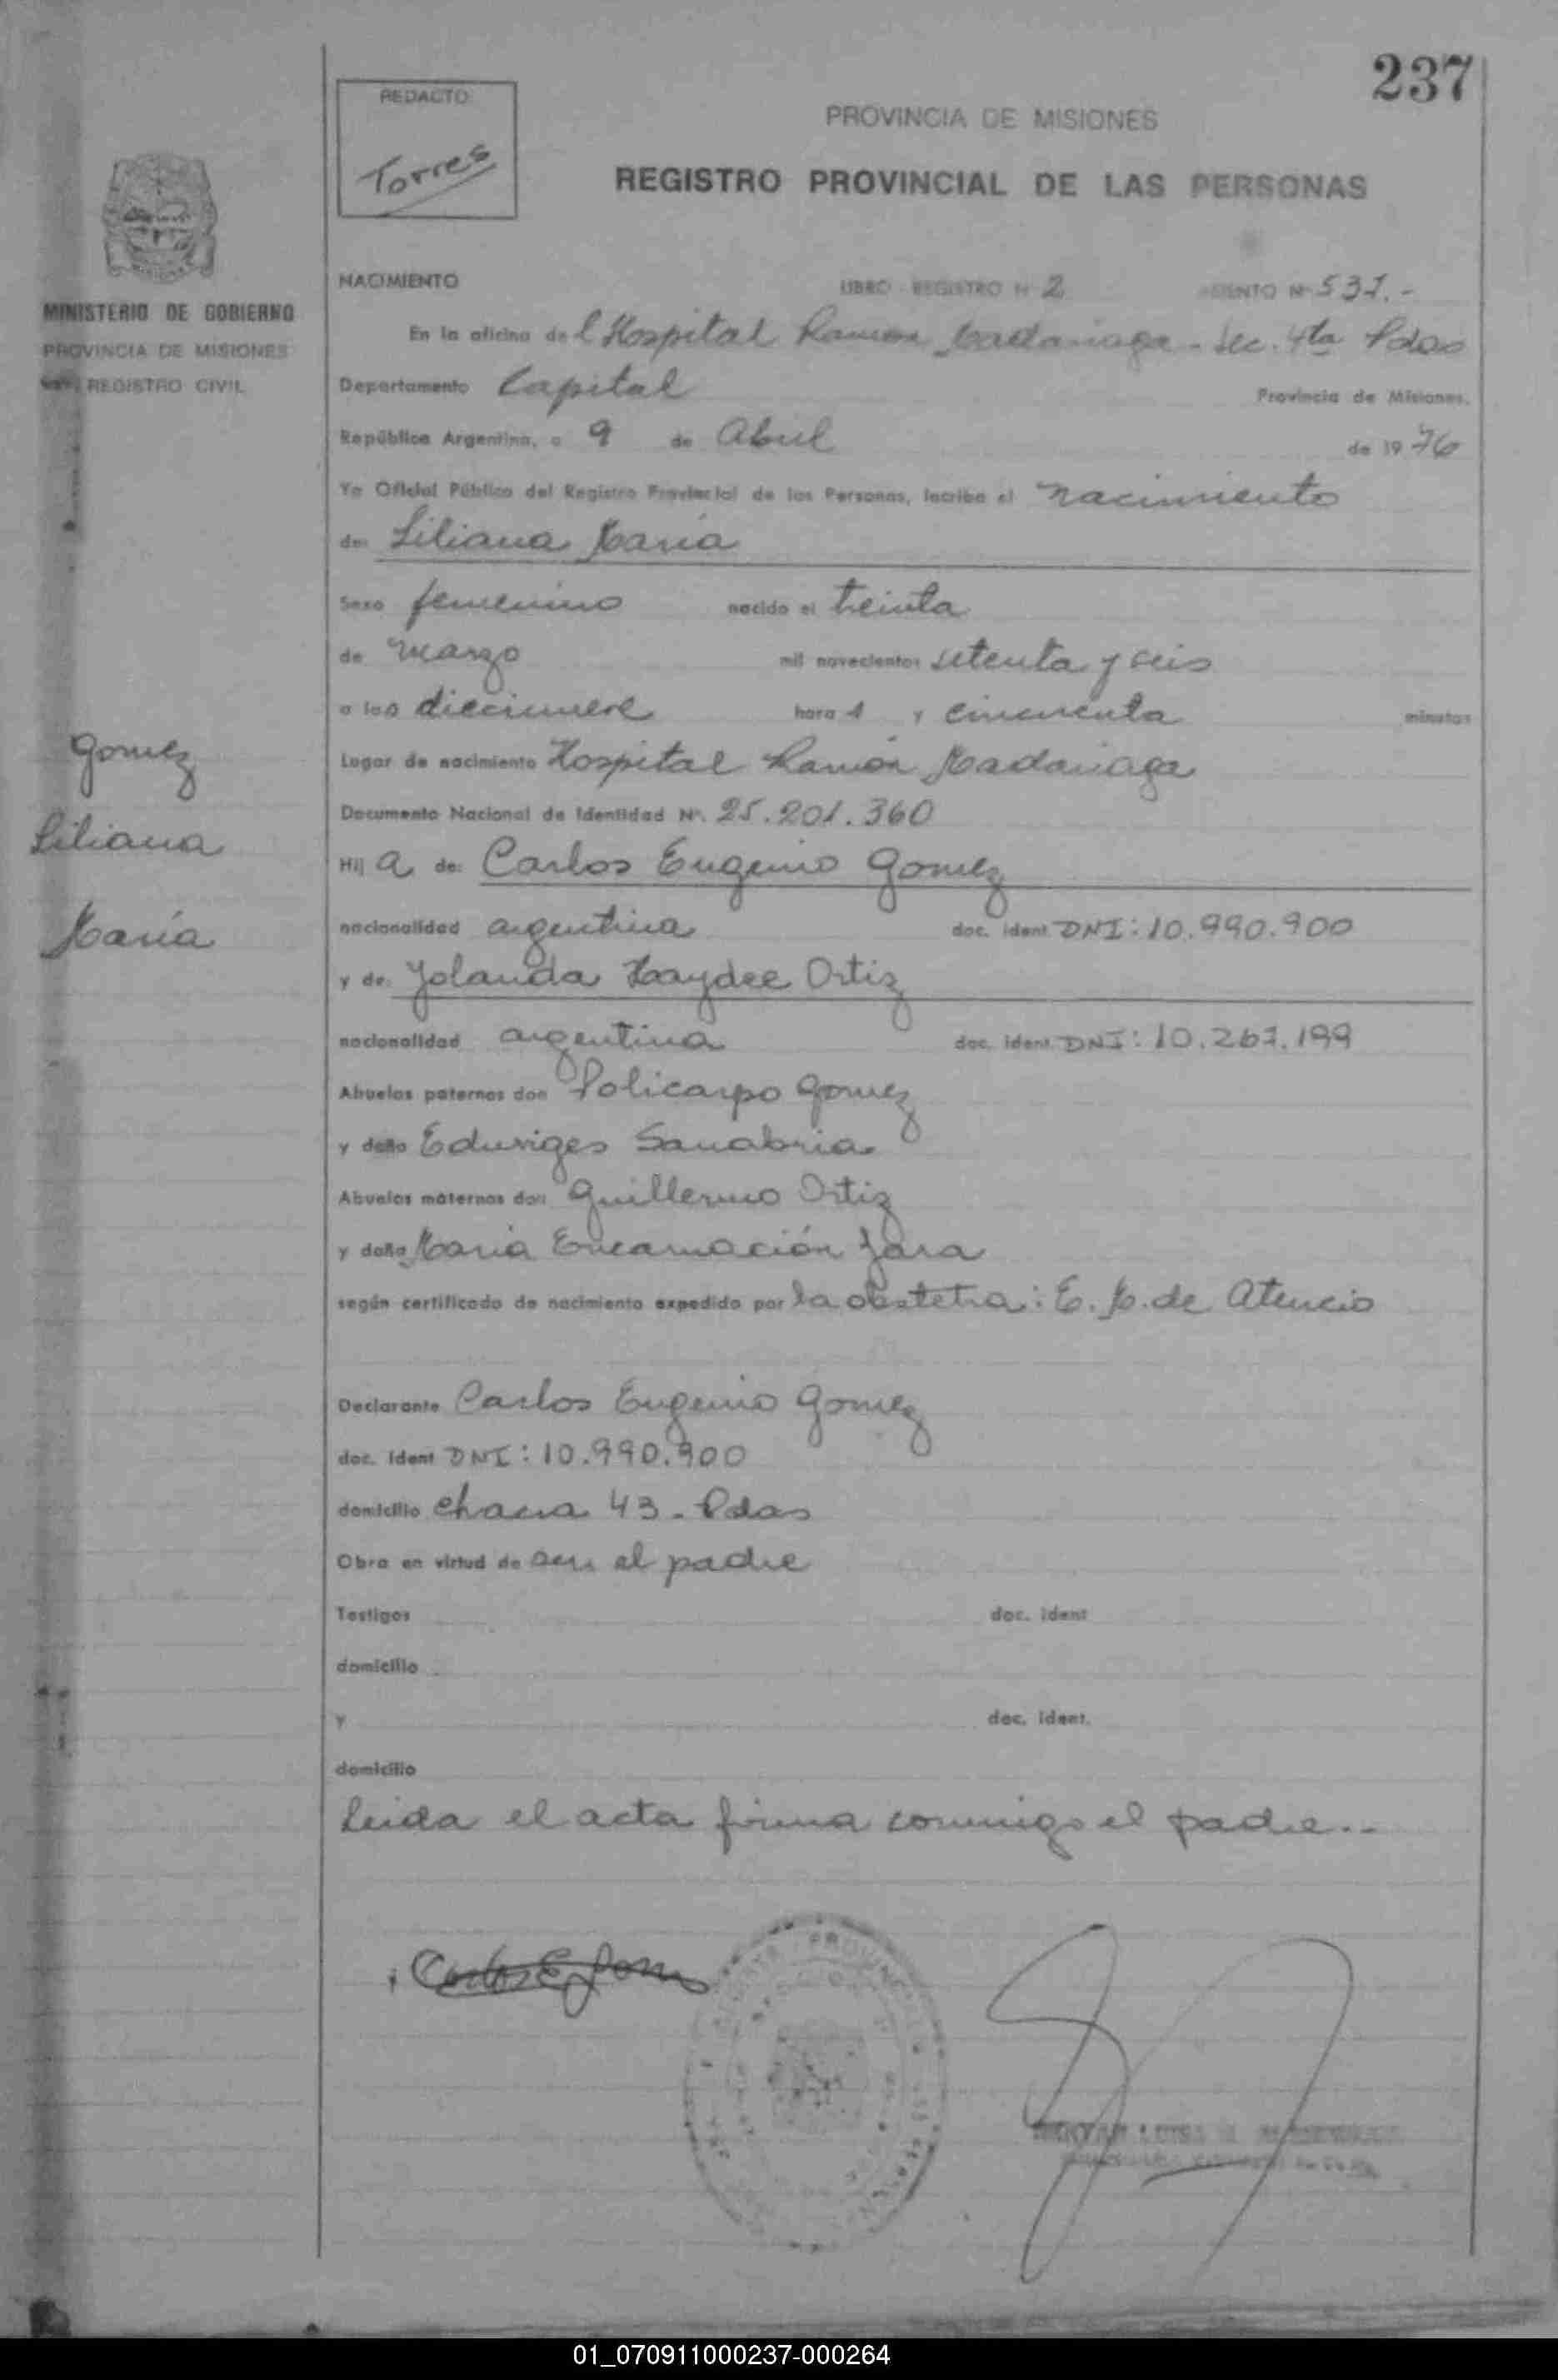 237
REDACTO
Torres
PROVINCIA DE MISIONES
REGISTRO PROVINCIAL DE LAS PERSONAS
MINISTERIO DE GOBIERNO
PROVINCIA DE MISIONES
REGISTRO CIVIL
NACIMIENTO LIBRO - REGISTRO Nº 2 ASIENTO Nº 531.-
En la oficina del Hospital Ramón Madariaga - Sec. 4ta Pdas
Departamento Capital Provincia de Misiones.
República Argentina, a 9 de Abril de 1976
Yo Oficial Público del Registro Provincial de las Personas, inscribo el nacimiento
de: Liliana María
Sexo femenino nacido el treinta
de marzo mil novecientos setenta y seis
a las diecinueve horas y cincuenta minutos
Lugar de nacimiento Hospital Ramón Madariaga
Documento Nacional de Identidad Nº. 25.201.360
Hija de: Carlos Eugenio Gomez
nacionalidad argentina doc. ident DNI: 10.990.900
y de: Yolanda Haydee Ortiz
nacionalidad argentina doc. ident. DNI: 10.267.199
Abuelos paternos don Policarpo Gomez
y doña Eduviges Sanabria
Abuelos maternos don Guillermo Ortiz
y doña María Encarnación Jara
según certificado de nacimiento expedido por la obstetra: E. M. de Atencio
Declarante Carlos Eugenio Gomez
doc. ident DNI: 10.990.900
domicilio Chacra 43 - Pdas
Obra en virtud de ser el padre
Testigos doc. ident
domicilio
y doc. ident.
domicilio
Leida el acta firma conmigo el padre..-
Gomez
Liliana
María
01_070911000237-000264